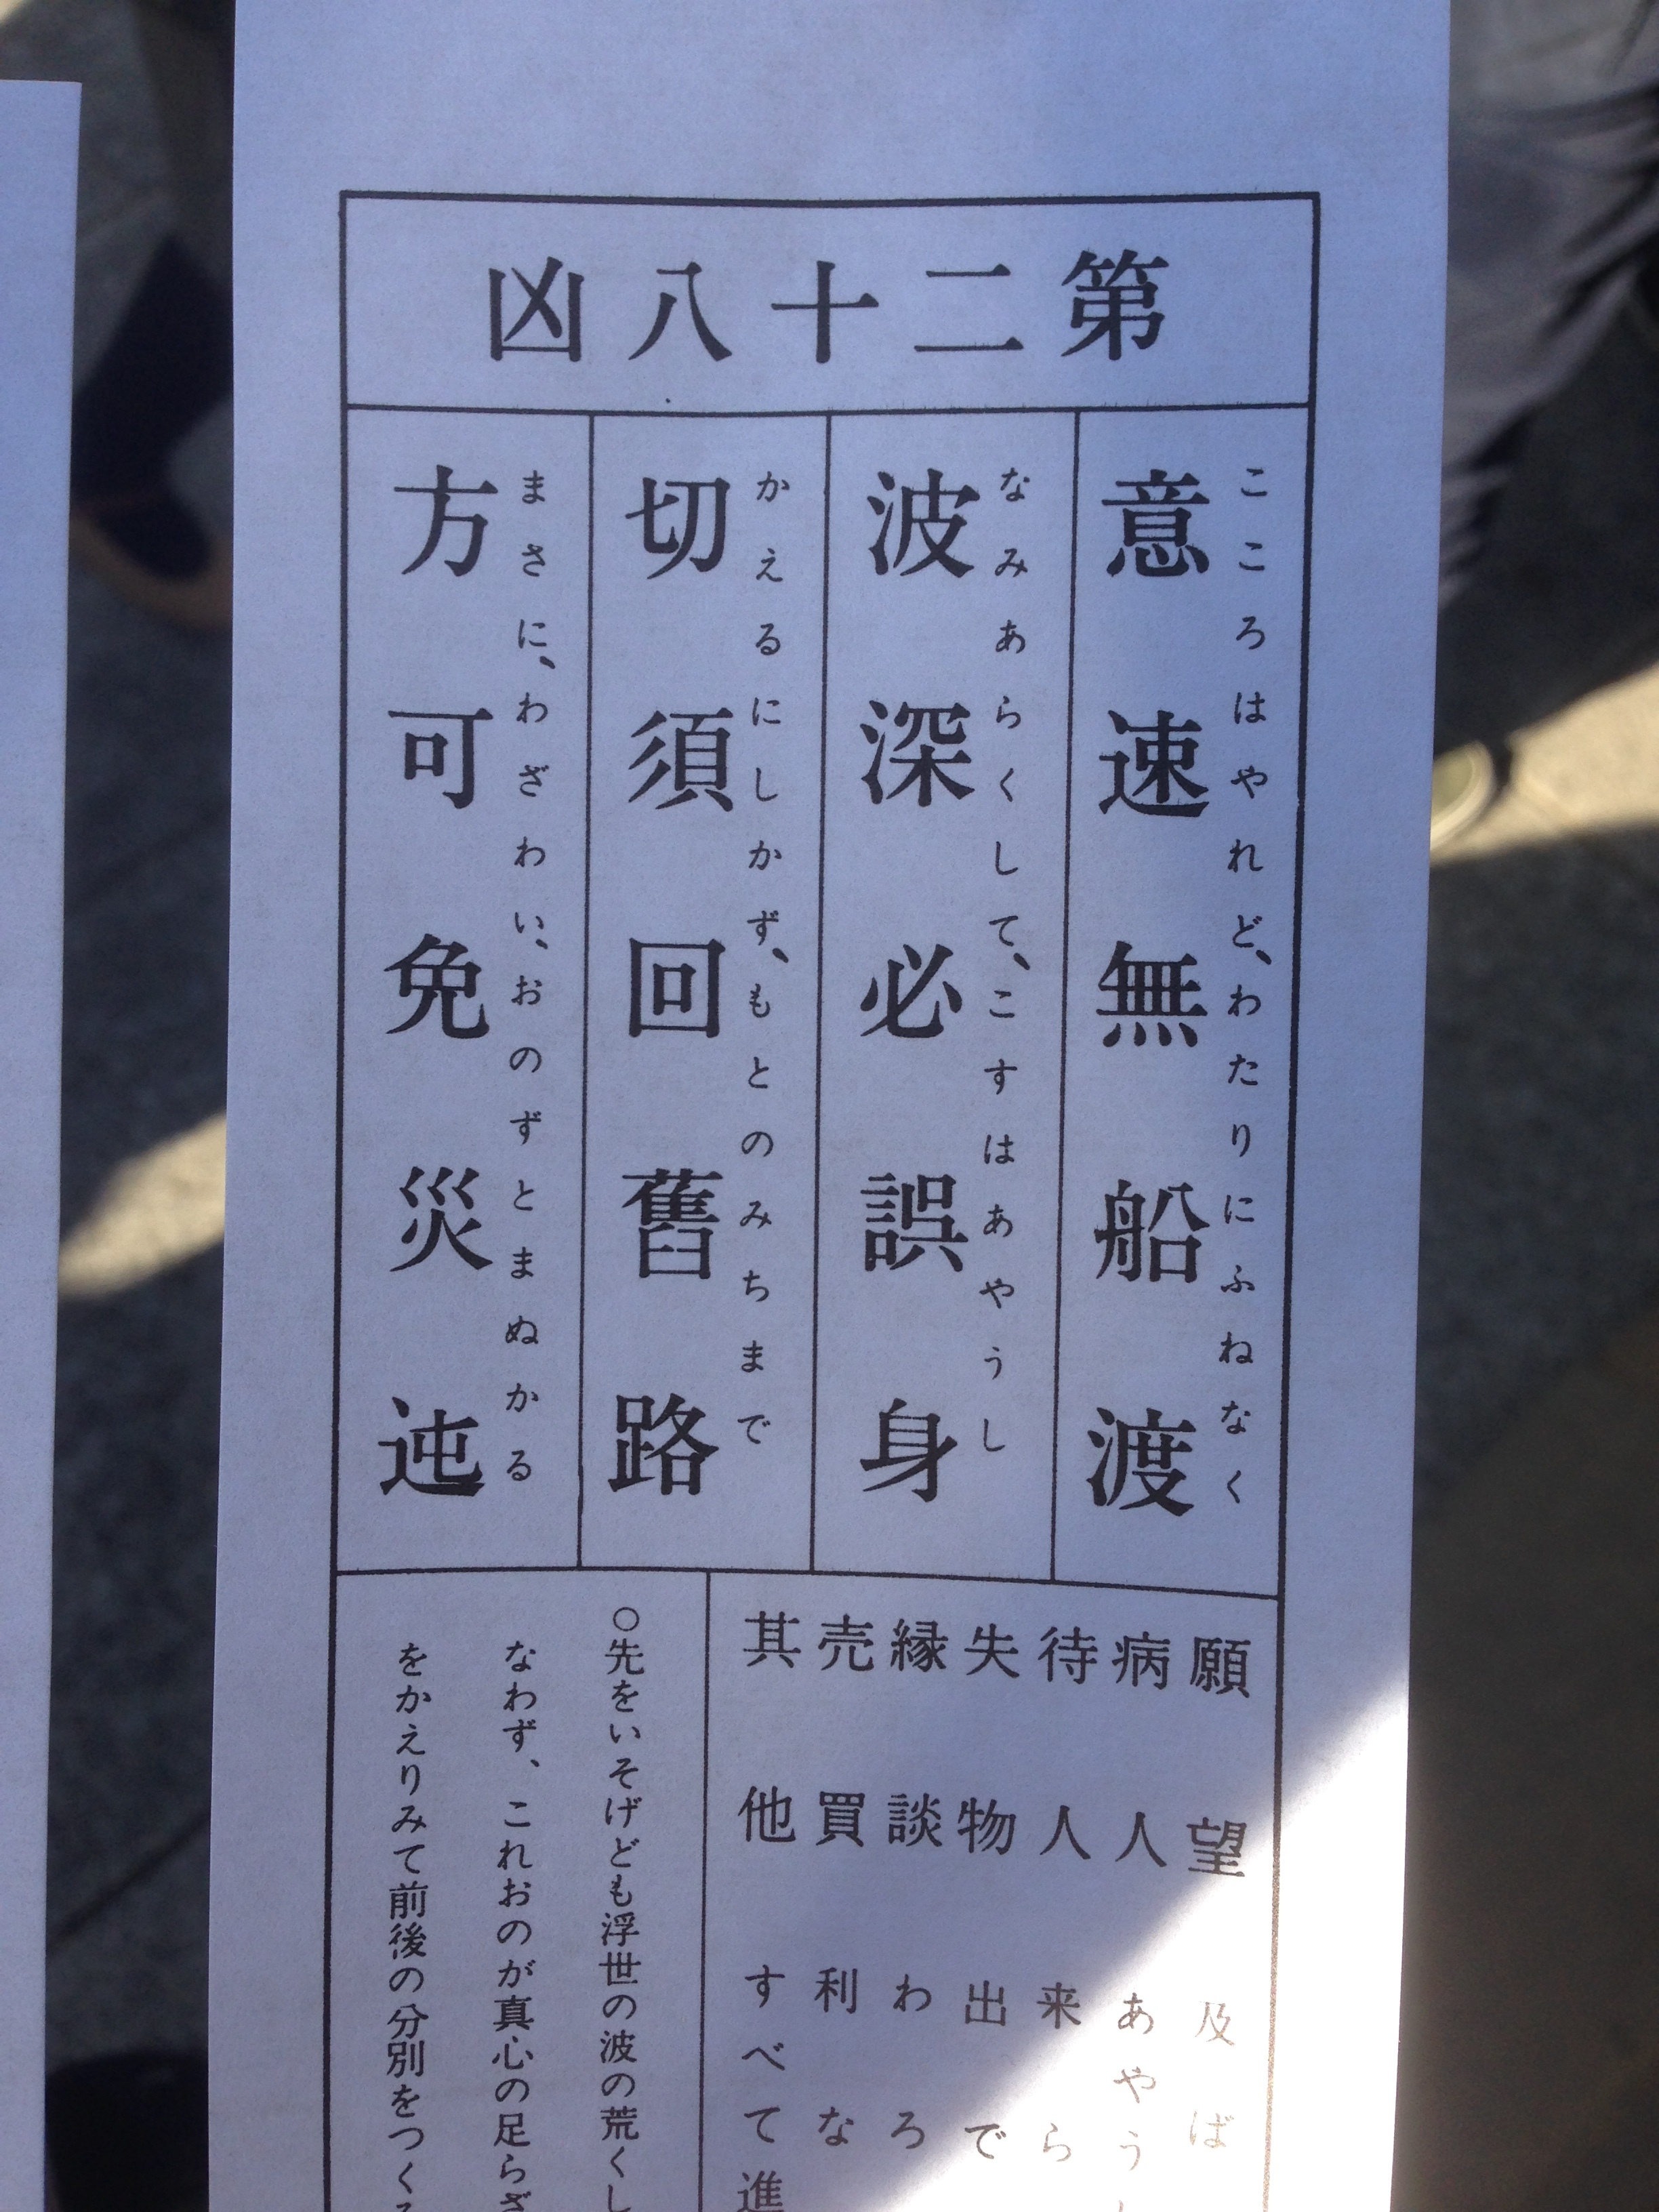 第二十八凶
こころはやれど、わたりにふねなく
意速無船渡
なみあらくして、こすはあやうし
波深必誤身
かえるにしかず、もとのみちまで
切須回舊路
まさに、わざわい、おのずとまぬかる
方可免災迍
願望 及ば
病人 あやうし
待人 来ら
失物 出で
縁談 わろ
売買 利な
其他 すべて進
○先をいそげども浮世の波の荒くし
なわず、これおのが真心の足らざ
をかえりみて前後の分別をつくる